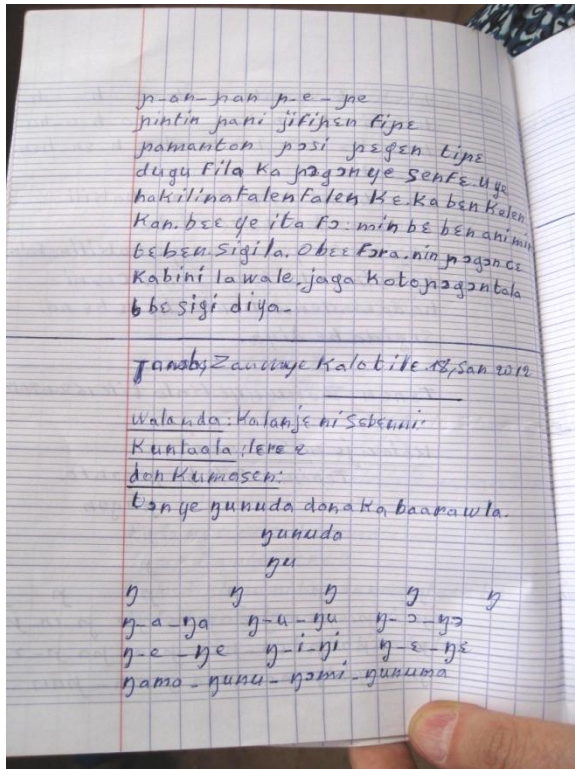 ɲ-an-ɲan ɲ-e-ɲe
ɲintin ɲani jiriɲɛn fiɲɛ
ɲamanton ɲɔsi ɲɛgɛn tiɲɛ
dugu fila ka ɲɔgɔn ye senfɛ. u ye
hakilina falen falen kɛ. ka bɛn kelen
kan. bɛɛ ye i ta fɔ: min bɛ bɛn ani min
bɛ bɛn. sigi la. o bɛɛ fɔra. nin ɲɔgɔn cɛ
kabini lawale. jaga koto ɲɔgɔn tala
b bɛ sigi diya-
Zanwuye Kalo tile 18, san 2012
walanda: Kalanje ni sɛbɛnni.
Kuntaala: lɛrɛ 2
don Kumasen:
tɔn ye ŋunuda don a ka baara wla.
ŋunuda
ŋu
ŋ ŋ ŋ ŋ ŋ
ŋ-a-ŋa ŋ-u-ŋu ŋ-ɔ-ŋɔ
ŋ-e-ŋe ŋ-i-ŋi ŋ-ɛ-ŋɛ
ŋama-ŋunu-ŋɔmi-ŋunuma